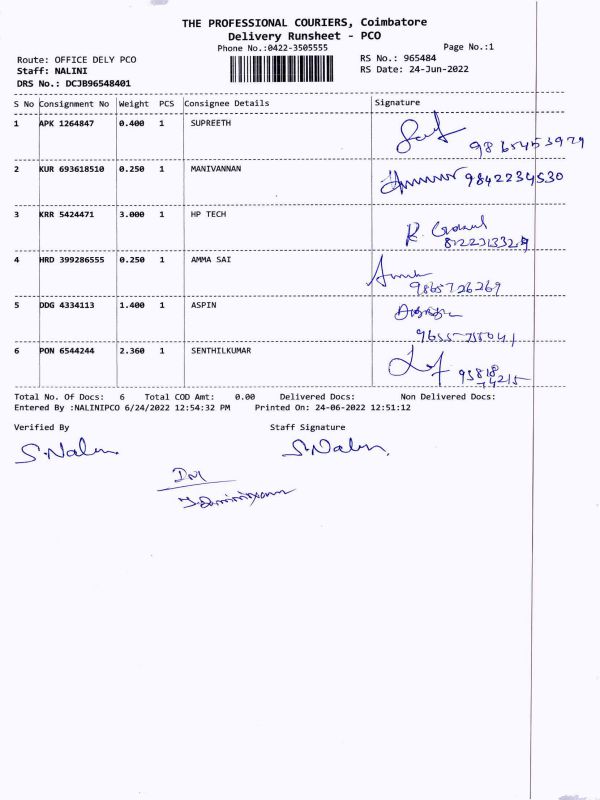 THE PROFESSIONAL COURIERS, Coimbatore
Delivery Runsheet - PCO
Phone No.:0422-3505555 Page No.:1
Route: OFFICE DELY PCO RS No.: 965484
Staff: NALINI RS Date: 24-Jun-2022
DRS No.: DCJB96548401
S No Consignment No Weight PCS Consignee Details Signature
1 APK 1264847 0.400 1 SUPREETH
2 KUR 693618510 0.250 1 MANIVANNAN 9842234530
3 KRR 5424471 3.000 1 HP TECH
4 HRD 399286555 0.250 1 AMMA SAI
9865726269
5 DDG 4334113 1.400 1 ASPIN
6 PON 6544244 2.360 1 SENTHILKUMAR
93818
74215
Total No. Of Docs: 6 Total COD Amt: 0.00 Delivered Docs: Non Delivered Docs:
Entered By :NALINIPCO 6/24/2022 12:54:32 PM Printed On: 24-06-2022 12:51:12
Verified By Staff Signature
S.Nalin S.Nalin